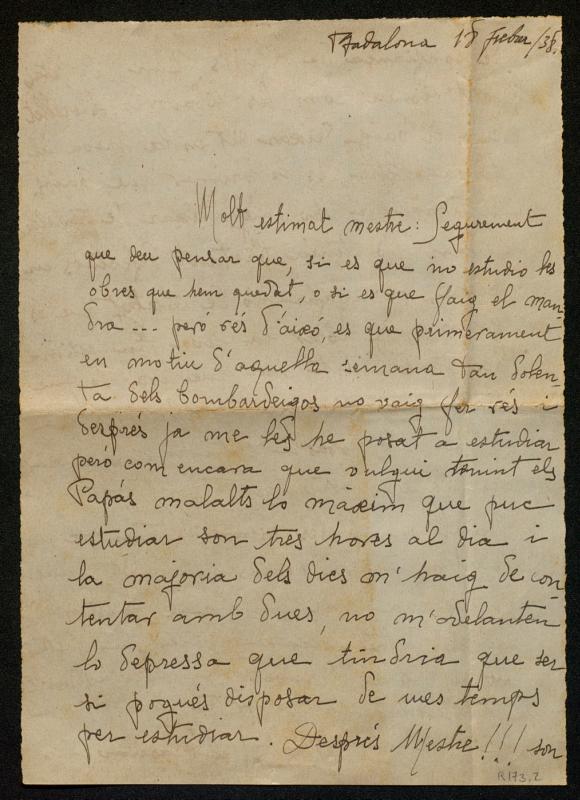 Badalona 18 Febrer/38.
Molt estimat mestre: Segurement
que deu pensar que, si es que no estudio les
obres que hem quedat, o si es que faig el man-
dra... peró rés d'aixó, es que primerament
en motiu d'aquella semana tan dolen-
ta dels bombardeigos no vaig fer rés i
després ja me les he posat a estudiar
peró com encara que vulgui tenint els
Papás malalts lo màxim que puc
estudiar son tres hores al dia i
la majoria dels dies m'haig de con-
tentar amb dues, no m'adelanten
lo depressa que tindria que ser
si pogués disposar de mes temps
per estudiar. Després Mestre!!! son
R173,2